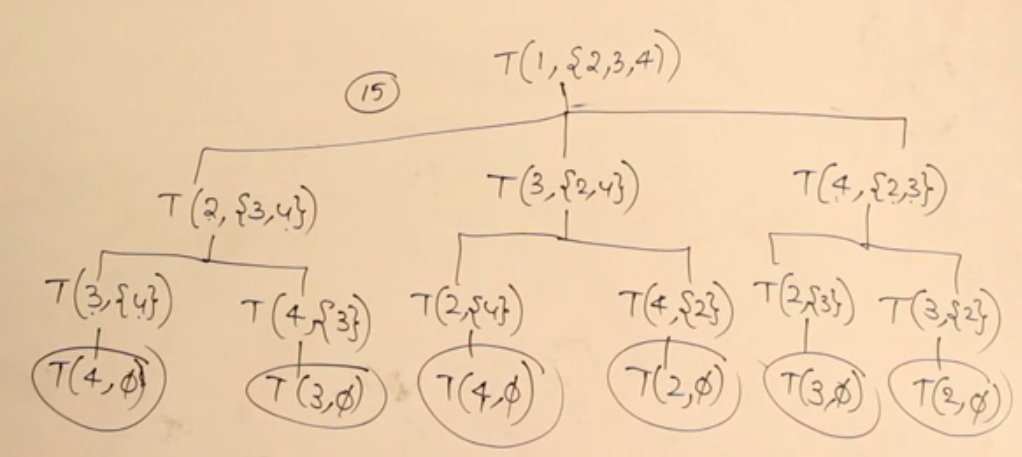 T(1, {2,3,4})
15
T(2, {3,4}) T(3, {2,4}) T(4, {2,3})
T(3, {4}) T(4, {3}) T(2, {4}) T(4, {2}) T(2, {3}) T(3, {2})
T(4, ϕ) T(3, ϕ) T(4, ϕ) T(2, ϕ) T(3, ϕ) T(2, ϕ)